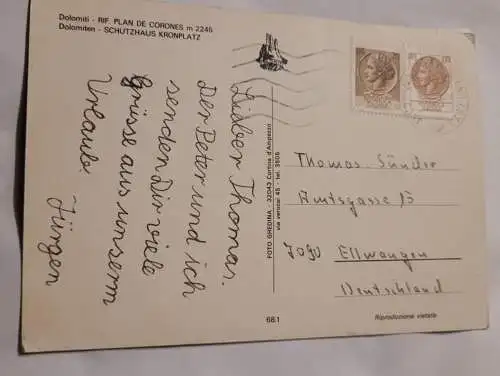 Dolomiti - RIF. PLAN DE CORONES m 2245
Dolomiten - SCHUTZHAUS KRONPLATZ
Lieber Thomas.
Der Peter und ich
senden Dir viele
Grüsse aus unserm
Urlaub.
Jürgen
FOTO GHEDINA - 32043 Cortina d'Ampezzo
via verocai 45 - tel. 3606
Thomas
Amtsgasse 13
7090 Ellwangen
Deutschland
68.1
Riproduzione vietata